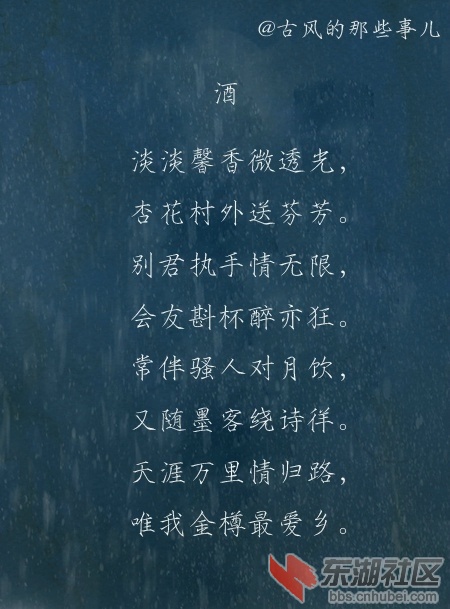 @古风的那些事儿
酒
淡淡馨香微透光，
杏花村外送芬芳。
别君执手情无限，
会友斟杯醉亦狂。
常伴骚人对月饮，
又随墨客绕诗徉。
天涯万里情归路，
唯我金樽最爱乡。
东湖社区
bbs.cnhubei.com